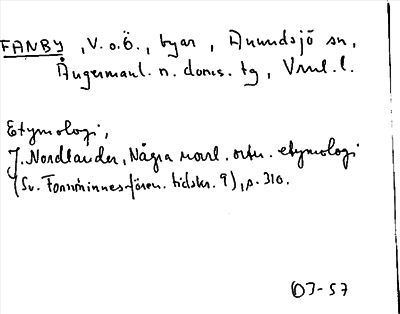 FANBY, V. o. Ö., byar, Anundsjö sn,
Ångermanl. n. doms. tg, Vnrl. l.
Etymologi,
J. Nordlander, Några norrl. ortn. etymologi
(Sv. Fornminnesfören. tidskr. 9), s. 310.
OJ-57